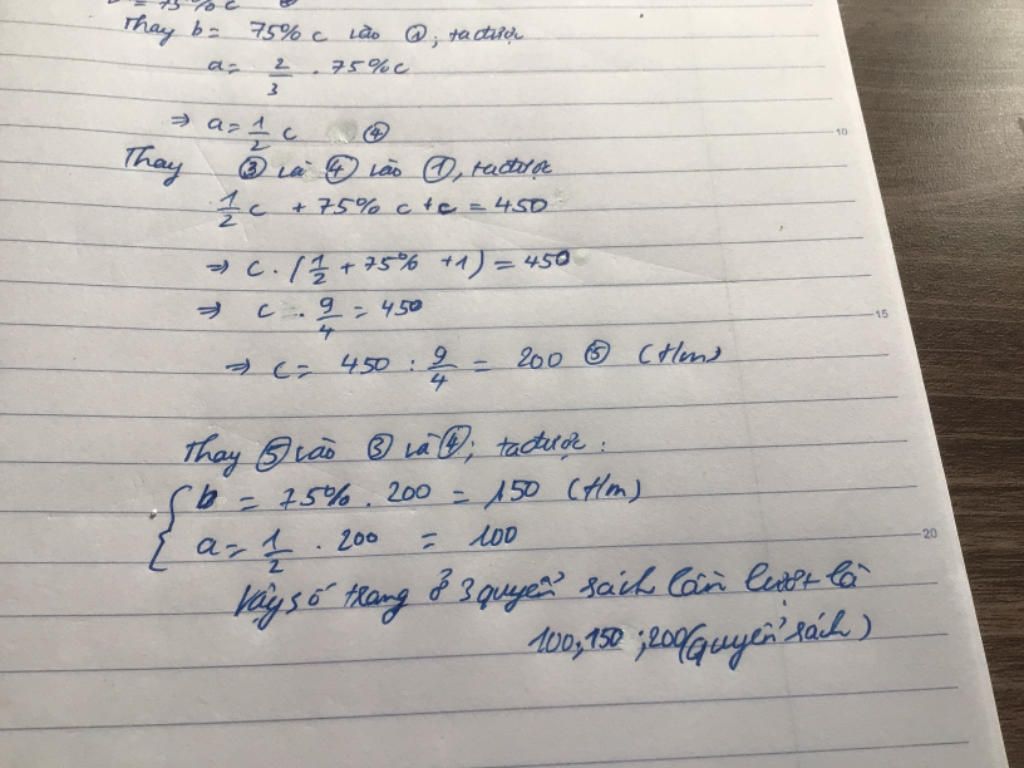 = 75% c
Thay b = 75% c vào ①; ta được
a = 2/3 . 75% c
⇒ a = 1/2 c ④
Thay ③ và ④ vào ①, ta được
1/2 c + 75% c + c = 450
⇒ c . (1/2 + 75% + 1) = 450
⇒ c . 9/4 = 450
⇒ c = 450 : 9/4 = 200 ⑤ (t/m)
Thay ⑤ vào ③ và ④; ta được:
{ b = 75% . 200 = 150 (t/m)
a = 1/2 . 200 = 100
Vậy số trang ở 3 quyển sách lần lượt là
100; 150; 200 (quyển sách)
10
15
20